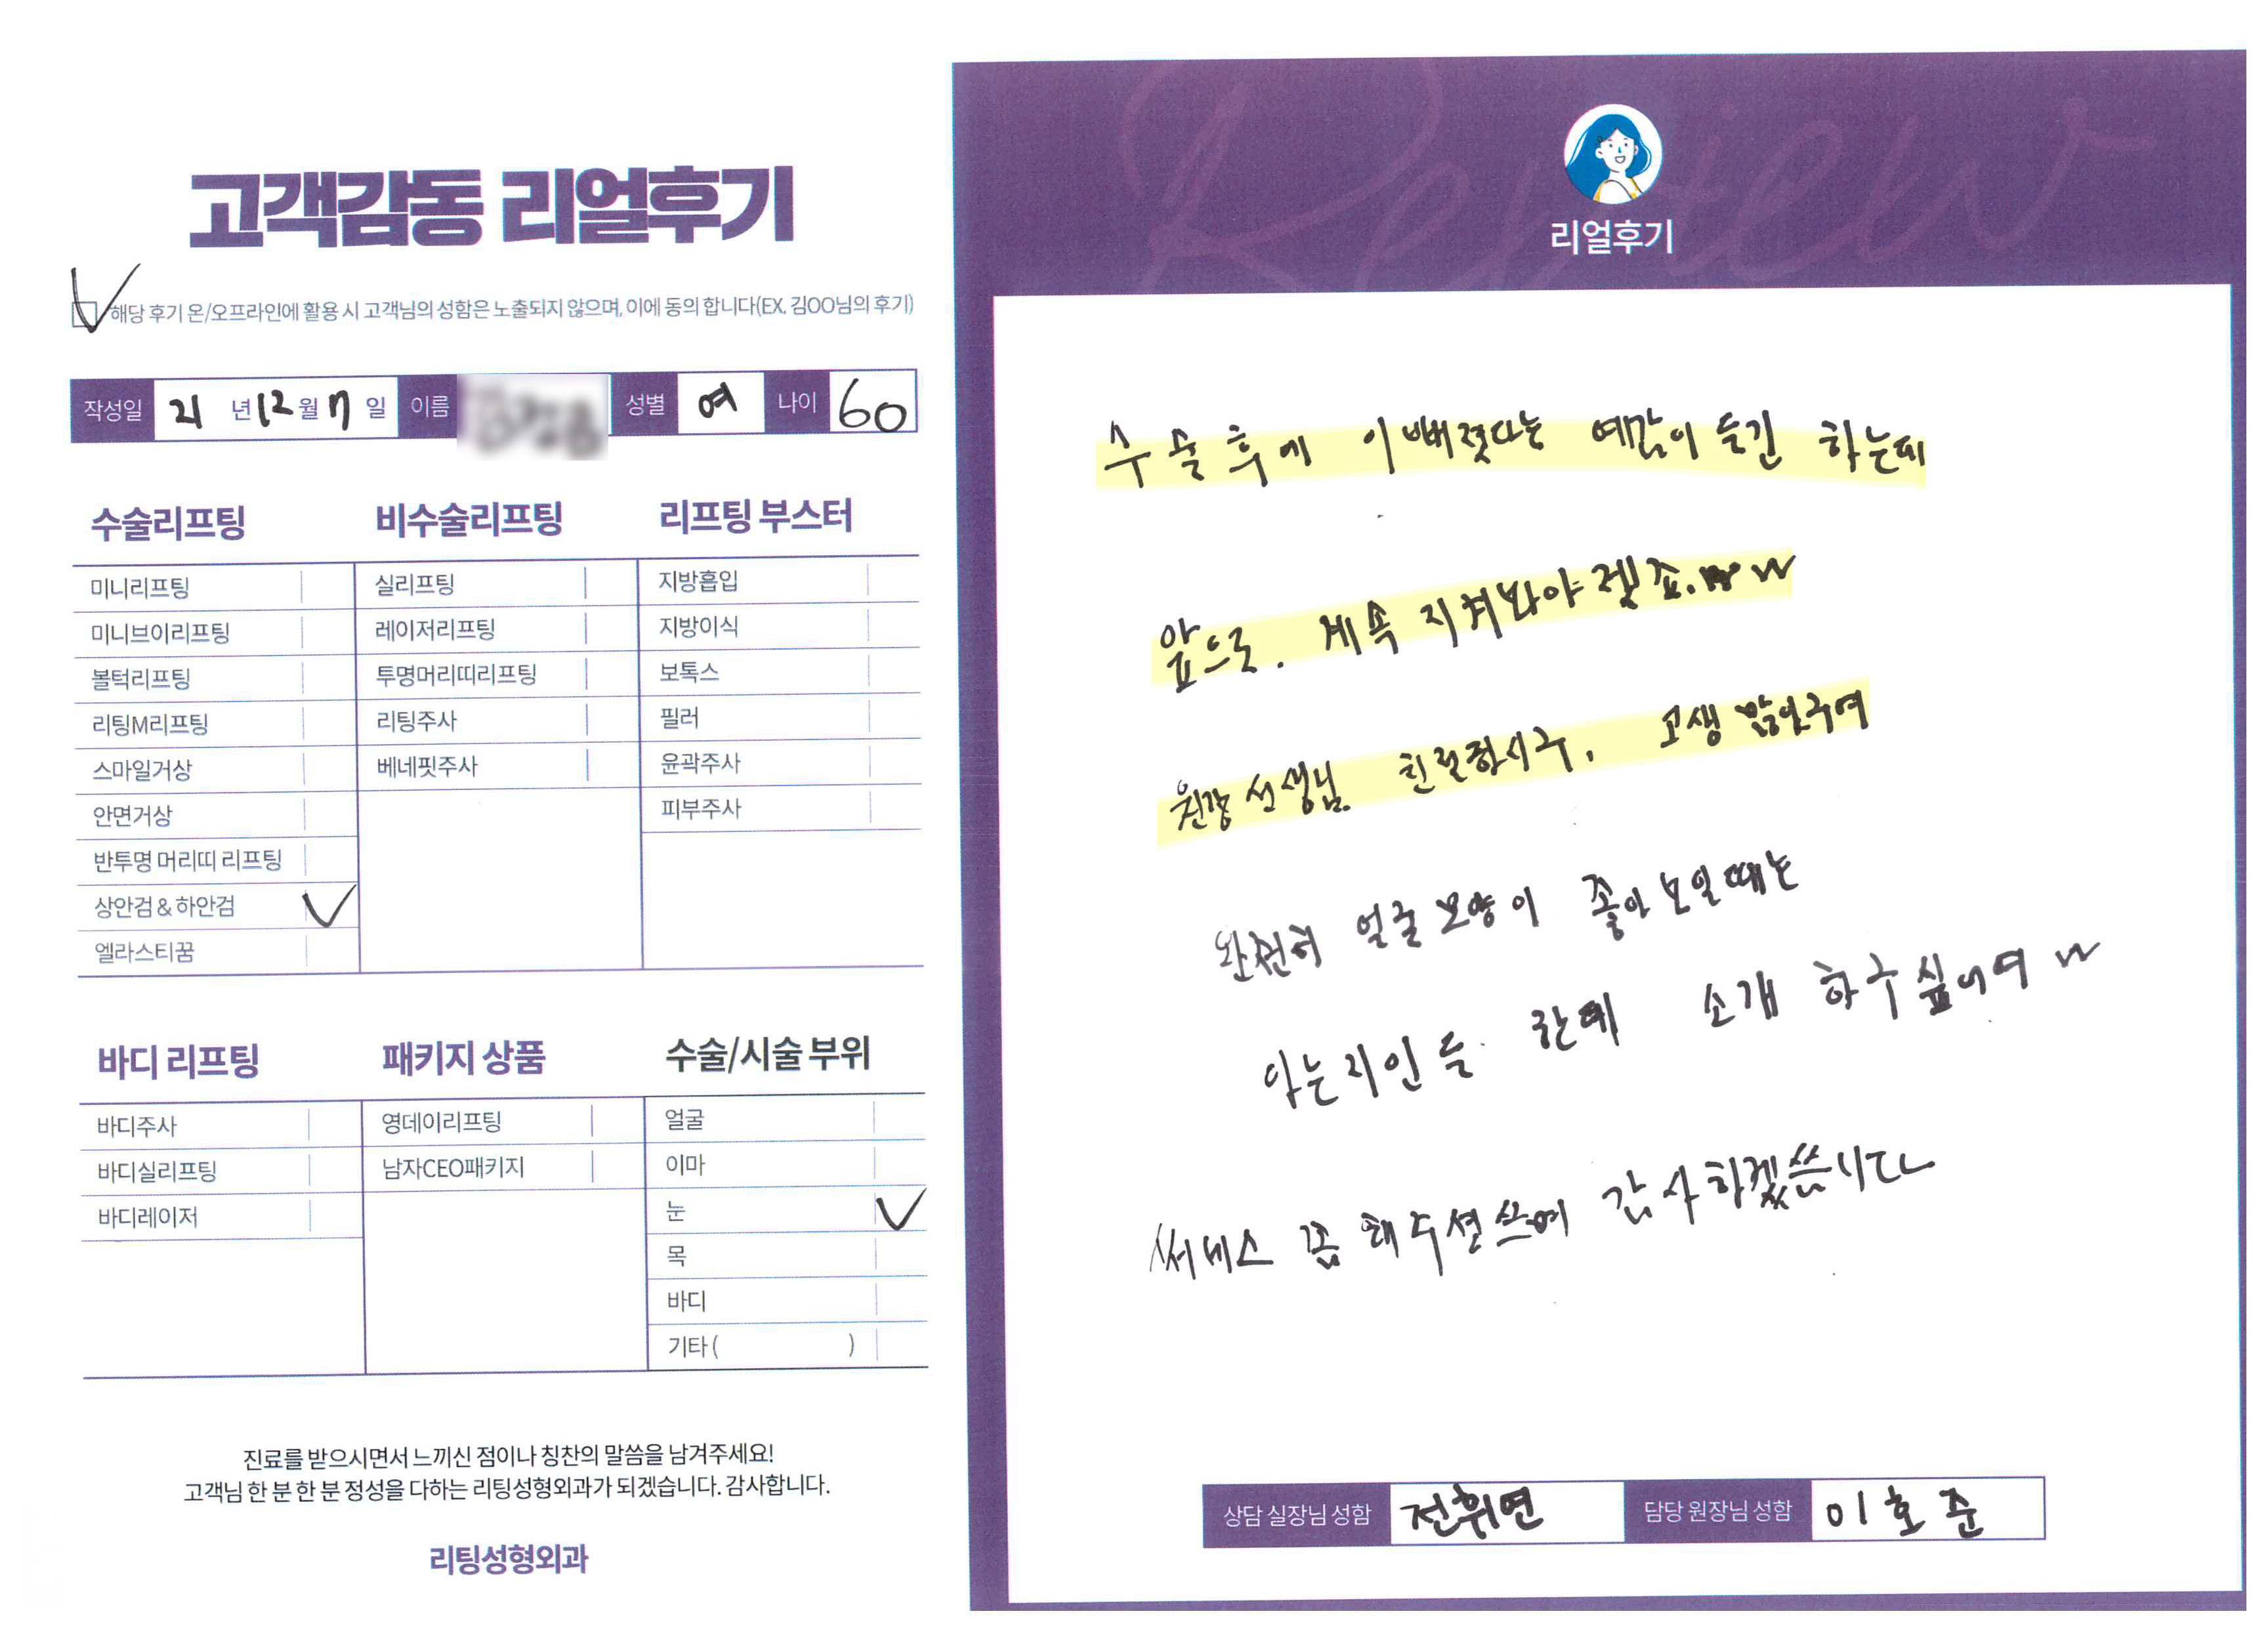 고객감동 리얼후기
해당 후기 온/오프라인에 활용 시 고객님의 성함은 노출되지 않으며, 이에 동의 합니다(EX. 김OO님의 후기)
작성일 21 년 12 월 7 일 이름 성별 여 나이 60
수술리프팅
미니리프팅
미니브이리프팅
볼턱리프팅
리팅M리프팅
스마일거상
안면거상
반투명 머리띠 리프팅
상안검 & 하안검
엘라스티꿈
비수술리프팅
실리프팅
레이저리프팅
투명머리띠리프팅
리팅주사
베네핏주사
리프팅 부스터
지방흡입
지방이식
보톡스
필러
윤곽주사
피부주사
바디 리프팅
바디주사
바디실리프팅
바디레이저
패키지 상품
영데이리프팅
남자CEO패키지
수술/시술 부위
얼굴
이마
눈
목
바디
기타 ( )
진료를 받으시면서 느끼신 점이나 칭찬의 말씀을 남겨주세요!
고객님 한 분 한 분 정성을 다하는 리팅성형외과가 되겠습니다. 감사합니다.
리팅성형외과
Review
리얼후기
수술후에 이뻐졋다는 예감이 들긴 하는데
앞으로. 계속 지켜봐야 겟죠. ^^
원장 선생님 친절하시구, 고생 많았구여
완전히 얼굴모양이 좋아보일때는
아는지인들 한테 소개 하구싶어여 ^^
써비스 꼼 해주션쓰메 감사하겠씀니다
상담 실장님 성함 전휘연 담당 원장님 성함 이호준